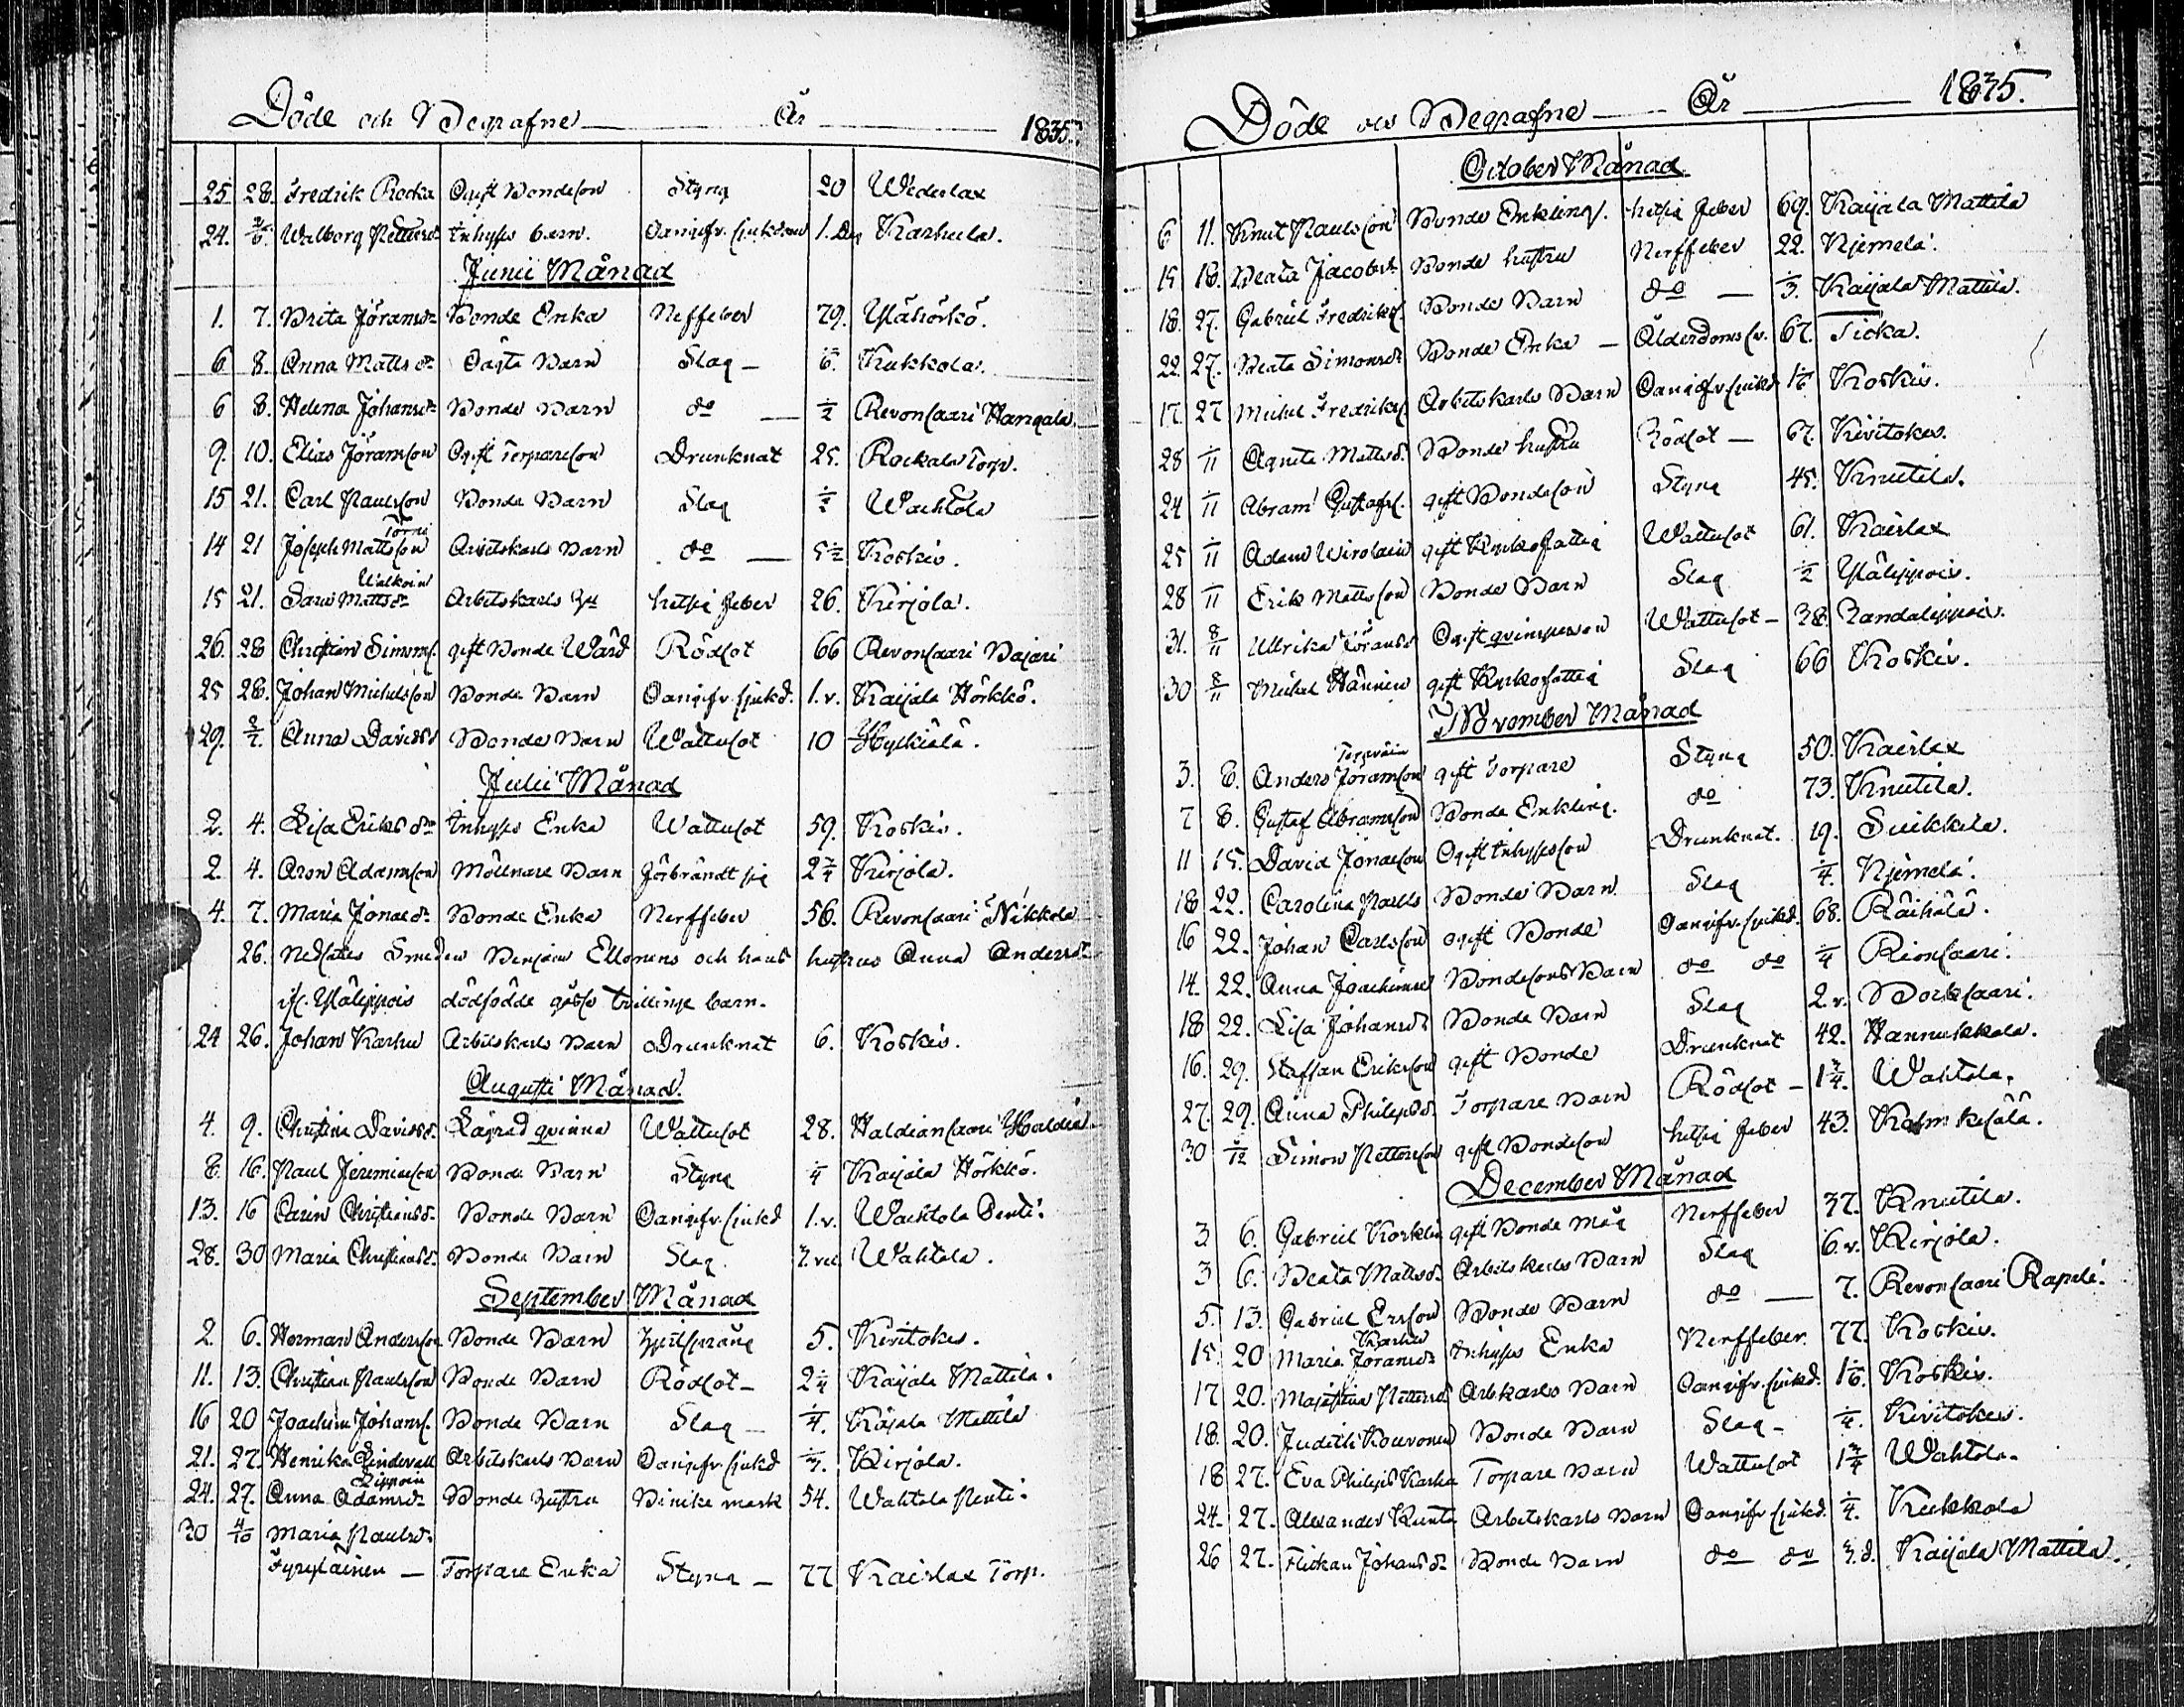 Döde och Begrafne År 1835.
25 28. Fredrik Rocka Ogift Bondeson Styng 20 Wederlax
24. 2/6. Walborg Pettersdr Inhyses barn. Oangifv. sjukdom 1. Dag Karhula.
Junii Månad
1. 7. Brita Jöransdr Bonde Enka Nerffeber 79. Ylähörkö.
6. 8. Anna Matts dr Oägta Barn Slag - Kukkola.
6 8. Helena Johansdr Bonde Barn do — 1/2 Revonsaari Hangala.
9. 10. Elias Jöransson Ogift Torpareson Drunknat 25. Rockala Torp.
15 21. Carl Paulsson Bonde Barn Slag 1/2 Wachtola
14 21 Joseph Mattsson Torni Arbetskarls Barn do — 5 1/2 Koskis.
15 21. Mattsdr Walkoin Arbetskarls hu hetsig feber 26. Kirjola.
26. 28 Christian Simons. gift Bonde Wärd Rödsot 66 Revonsaari Pajari
25 28. Johan Michelsson Bonde Barn Oangifv. sjukd. 1. v. Kaijala Hörkkö.
29. 2/7. Anna Davidsdr Bonde Barn Wattusot 10
Julii Månad
2. 4. Lisa Eriks dr Inhyses Enka Wattusot 59. Koskis.
2. 4. Aron Adamsson Möllnare Barn förbrändt sig 2 3/4 Kirjola.
4. 7. Maria Jonaedr Bonde Enka Nerffeber 56. Revonsaari Nikkola
26. Nedsattes Smeden Benjam Ellonens och hans hustrus Anna Andersdr
ifr. Yläleppois dödfödde gosse tvillinge barn.
24 26. Johan Karhu Arbetskarls Barn Drunknat 6. Koskis.
Augusti Månad.
4. 9. Christina Davidsdr. Lägrad qvinna Wattusot 28. Haldiansaari
8. 16. Paul Jeremiaeson Bonde Barn Styng 1/4 Kaijala Hörkkö.
13. 16 Carin Christiansdr. Bonde Barn Oangifv. sjukd 1. v. Wachtola Penti.
28. 30 Maria Christiansdr. Bonde Barn Slag. 3. vec. Wahtola.
September Månad
2. 6. Herman Andersson Bonde Barn 5. Kivitokes.
11. 13. Christian Paulsson Bonde Barn Rödsot - 2 1/4 Kaijala Mattila.
16 20 Joachim Johans. Bonde Barn Slag - 1/4. Kajala Mattila
21. 27. Henrika Lindevall Arbetskarls Barn Oangifv. sjukd Kirjola.
24. 27. Anna Adamsdr Leppoin Bonde hustru Binike mask 54. Wahtola Penti.
30 4/10 Maria Paulsdr.
Fyryläinen — Torpare Enka Styng - 77 Kaislax Torp.
Döde och Begrafne År 1835.
October Månad
6 11. Knut Paulsson Bonde Enkling. hetsig feber 69. Kaijala Mattila
15 18. Beata Jacobsdr. Bonde hustru Nerffeber 22. Njemelä.
18. 27. Gabriel Fredriks. Bonde Barn do — Kaijala Mattila.
22. 27. Beata Simonsdr Bonde Enka — Ålderdomssv. 67. Ticka.
17. 27 Michel Fredriks. Arbetskarls Barn Oangifv. sjukd Koskis.
28 1/11 Agneta Mattsd. Bonde hustru Rödsot — 67. Kivitokes.
24 1/11 Abram Gustafs. gift Bondeson Styng 45. Knutila.
25 1/11 Adam Wirolain gift Kyrkofattig Wattusot 61. Kaislax
28 1/11 Erik Mattsson Bonde Barn Slag 1/2 Yläleppois.
31. 8/11 Ulrika Jöransdr Ogift qvinsperson Wattusot - 38. Randaleppois.
30 8/11 Michel Hänninen gift Kyrkofattig Slag 66 Koskis.
November Månad
3. 8. Anders Jöransson Terwäin gift Torpare Styng 50. Kaislax
7 8. Gustaf Abramsson Bonde Enkling. do 73. Knutila.
11 15. David Jonaeson Ogift Inhysesson Drunknat. 19. Suikkila.
18 22. Carolina Paulsdr Bonde Barn Slag 1/4. Njemelä.
16 22. Johan Carlsson gift Bonde Oangifv. sjukd. 68. Räihälä.
14. 22. Anna Joachimsdr Bondesons Barn do do 1/4 Rionsaari.
18 22. Lisa Johansdr Bonde Barn Slag 2. v. Borksaari.
16. 29. Staffan Eriksson gift Bonde Drunknat 42. Hannukkala.
27. 29. Anna Philipsdr. Torpare Barn Rödsot - 1 3/4. Wahtola.
30 6/12 Simon Pettersson gift Bondeson hetsig feber 43. Kolmikesälä.
December Månad
3 6. Gabriel Korklin gift Bonde måg Nerffeber 37. Knutila.
3 6. Beata Mattsdr. Arbetskarls Barn Slag 6. v. Kirjola.
5. 13. Gabriel Ersson Bonde Barn do — 7. Revonsaari Rapeli.
15. 20 Maria Jöransdr Karhu Inhyses Enka Nerffeber. 77. Koskis.
17 20. Majastina Pettersd Arbkarls Barn Oangifv. sjukd. Koskis.
18. 20. Judith Kouvonen Bonde Barn Slag - 1/4. Kivitokes.
18 27. Eva Philipsd Karhu Torpare Barn Wattusot 1 3/4 Wahtola.
24. 27. Alexander Arbetskarls Barn Oangifv. sjukd. 1/4. Kukkola
26 27. Flickan Johansdr Bonde Barn do do 3. d. Kaijala Mattila.